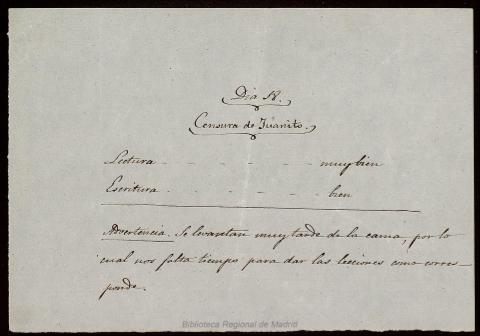 Dia 18.
Censura de Juanito.
Lectura - - - - - - muy bien
Escritura - - - - - - bien
Advertencia. Se levantan muy tarde de la cama, por lo
cual nos falta tiempo para dar las lecciones como corres-
ponde.
Biblioteca Regional de Madrid